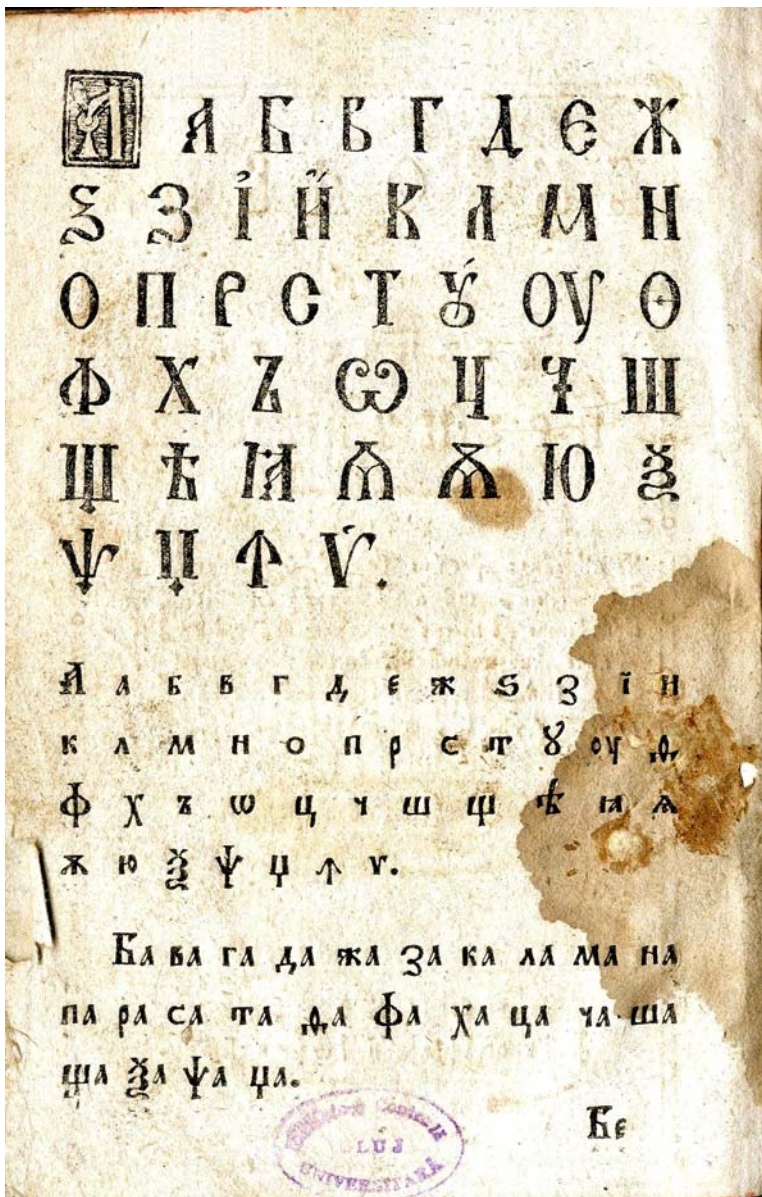 А А Б В Г Д Є Ж
Ѯ Ꙁ І̓ Й К Л М Н
О П Р С Т Ꙋ́ ОУ Ѳ
Ф Х Ъ Ѡ Ц Ч Ш
Щ Ѣ Ꙗ Ѧ Ѫ Ю Ѯ
Ѱ Џ Ꙟ Ѵ̓.
А а б в г д є ж ѕ ꙁ ї и
к л м н о п р с т ꙋ оу ѳ
ф х ъ ѡ ц ч ш щ ѣ ꙗ ѧ
ѫ ю ѯ ѱ џ ꙟ ѵ.
Ба ва га да жа ꙁа ка ла ма на
па ра са та ѳа фа ха ца ча ша
ща ѯа ѱа џа.
Бє
CLUJ
UNIVERSITARĂ